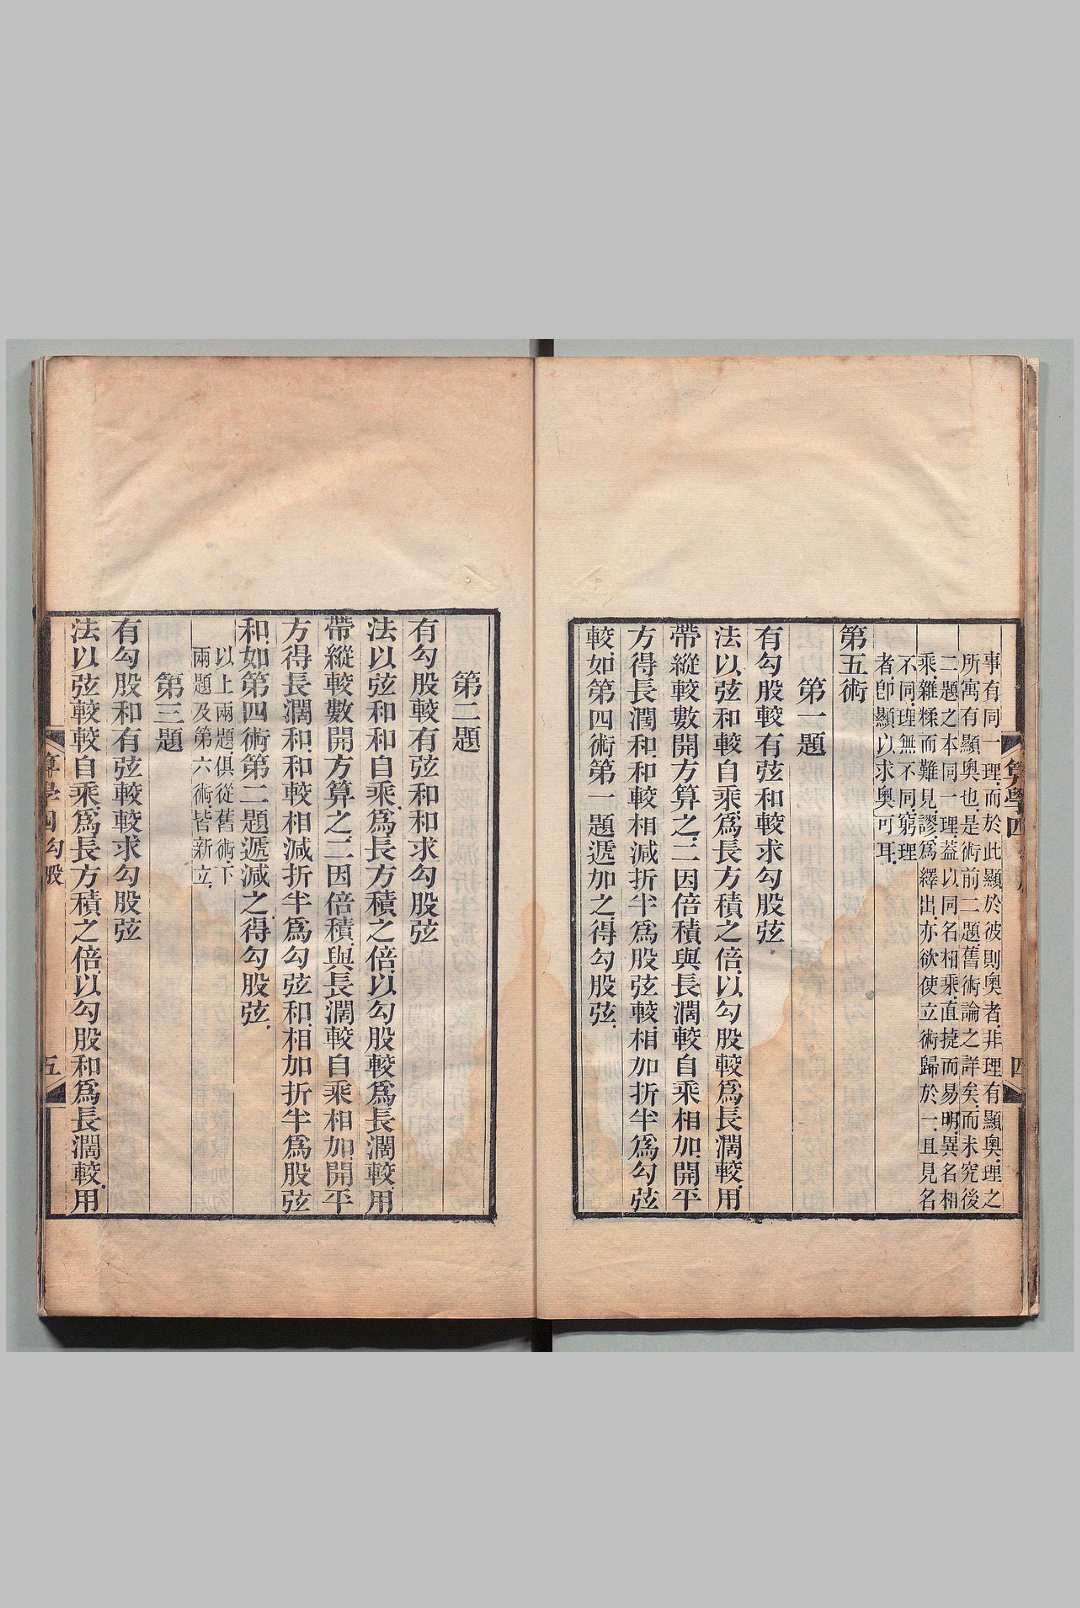 事有同一理而於此顯於彼則奧者非理有顯奧理之
所寓有顯奧也是術前二題舊術論之詳矣而未究後
二題之本同一理葢以同名相乘直捷而易明異名相
乘雜糅而難見謬爲繹出亦欲使立術歸於一且見名
不同理無不同窮理
者卽顯以求奧可耳
第五術
第一題
有勾股較有弦和較求勾股弦
法以弦和較自乘爲長方積之倍以勾股較爲長濶較用
帶縱較數開方算之二因倍積與長濶較自乘相加開平
方得長濶和和較相減折半爲股弦較相加折半爲勾弦
較如第四術第一題遞加之得勾股弦
算學四
四
第二題
有勾股較有弦和和求勾股弦
法以弦和和自乘爲長方積之倍以勾股較爲長濶較用
帶縱較數開方算之二因倍積與長濶較自乘相加開平
方得長濶和和較相減折半爲勾弦和相加折半爲股弦
和如第四術第二題遞減之得勾股弦
以上兩題俱從舊術下
兩題及第六術皆新立
第三題
有勾股和有弦較較求勾股弦
法以弦較較自乘爲長方積之倍以勾股和爲長濶較用
算學四勾股
五